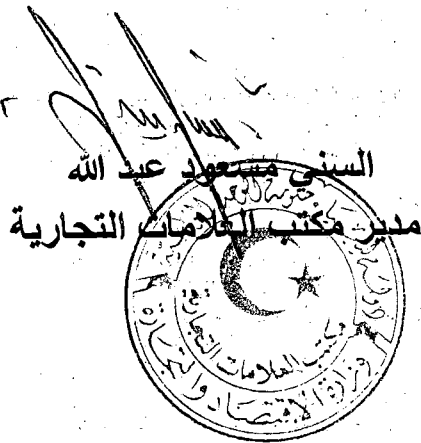 السني مسعود عبد الله
مدير مكتب العلامات التجارية
مكتب العلامات التجارية
وزارة الإقتصاد والتجارة